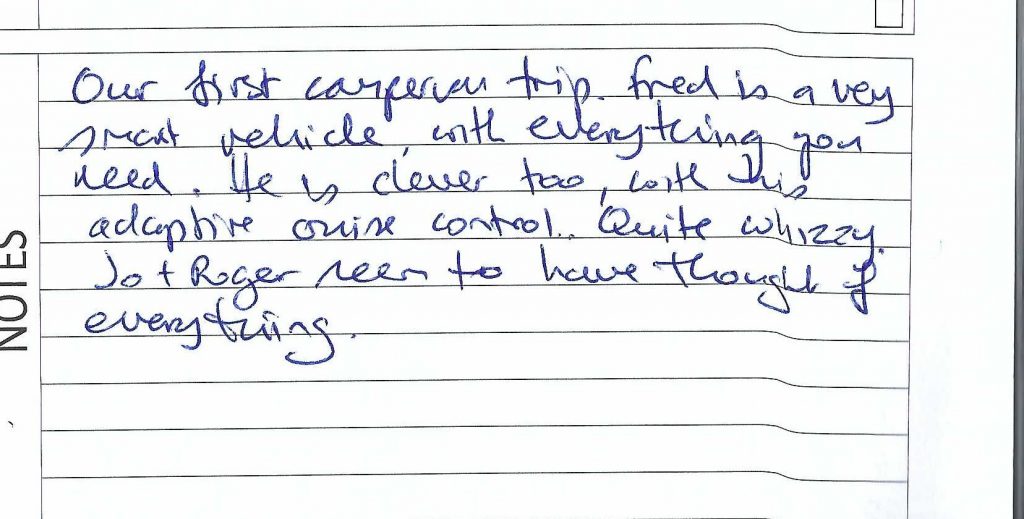 NOTES
Our first campervan trip. Fred is a very
smart vehicle, with everything you
need. He is clever too, with his
adaptive cruise control.. Quite whizzy.
Jo + Roger seem to have thought of
everything.